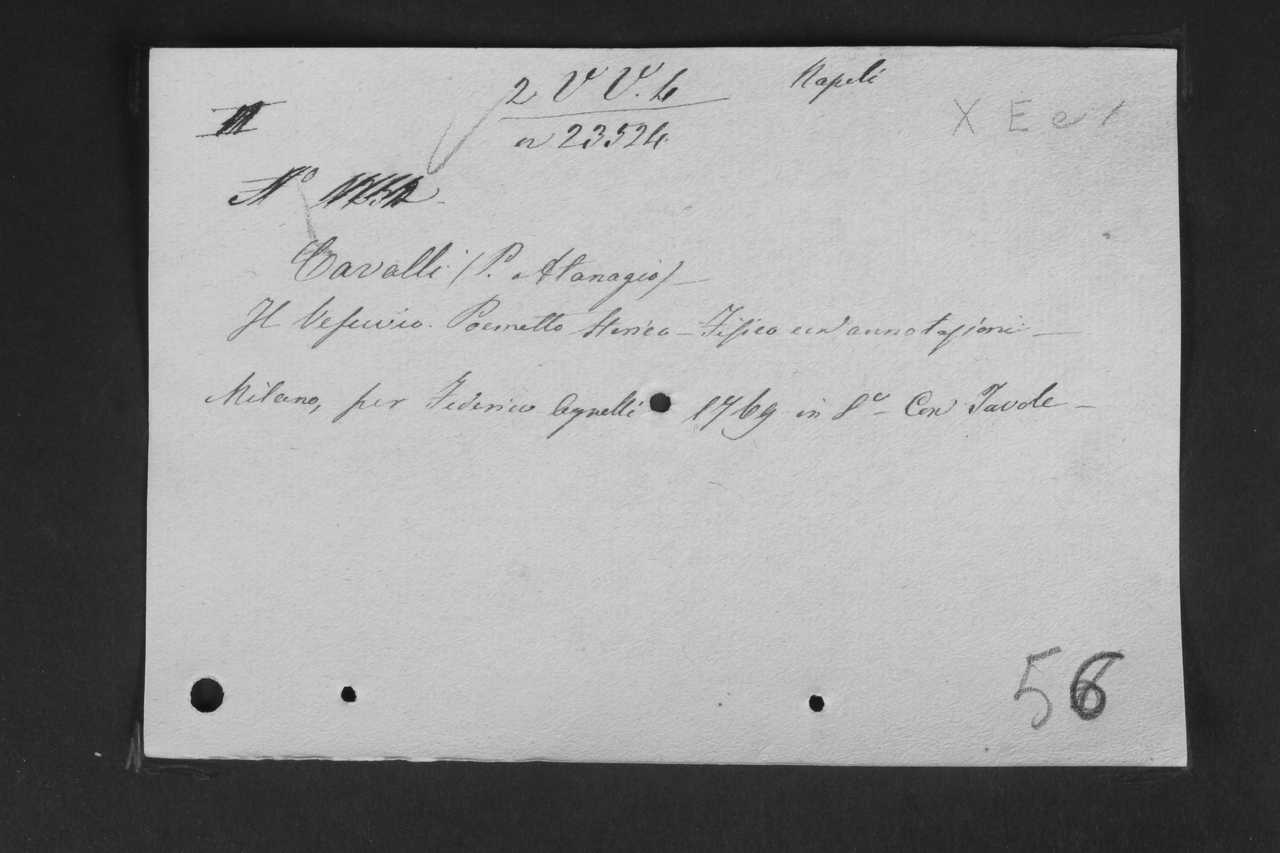 2 V V. 4 Napoli
X E e 1
a 23524
Nº
Cavalli (P. Atanagio) –
Il Vesuvio. Poemetto Storico – Fisico con annotazioni –
Milano, per Federico Agnelli 1769 in 8º – Con Tavole –
56